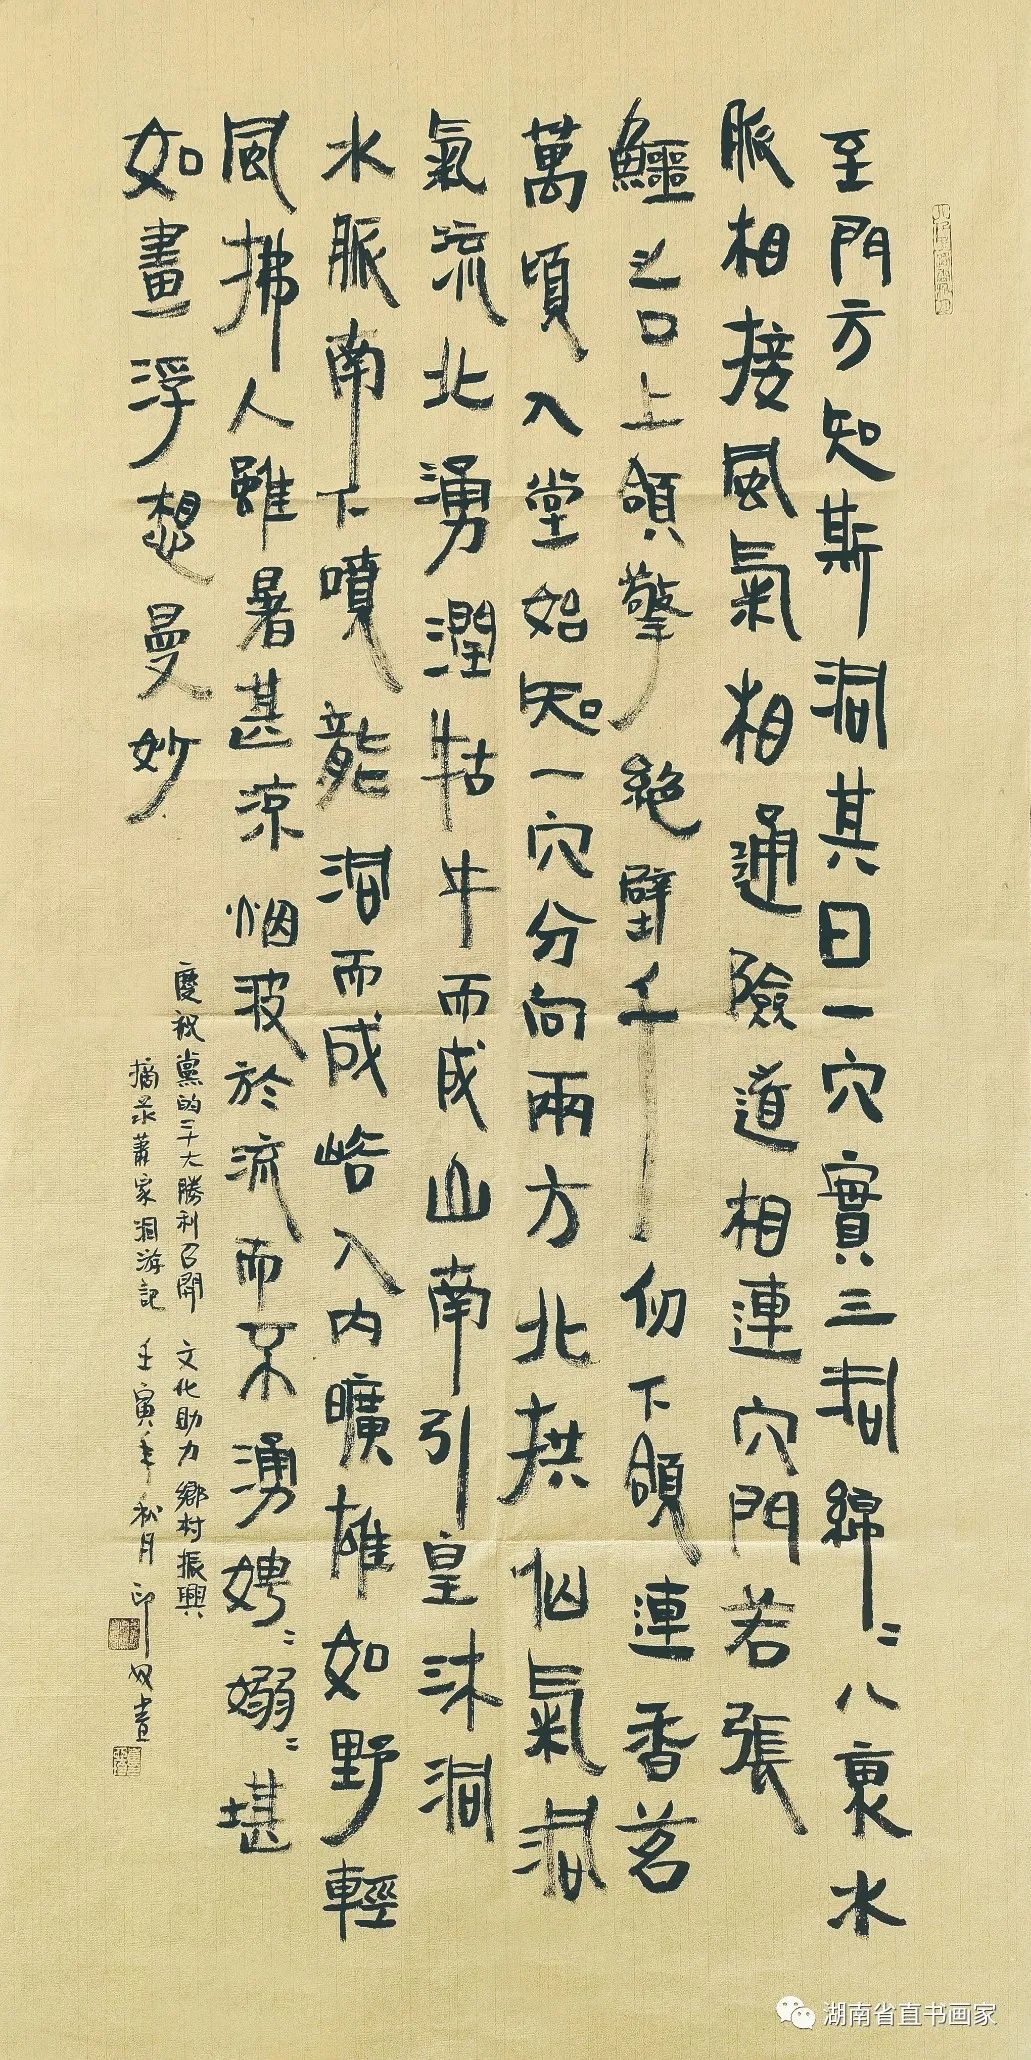 至門方知斯洞其曰一穴實三洞綿〻八裏水
脈相接風氣相通險道相連穴門若張
鱷之口上頜擎絕壁千仞下頜連香茗
萬頃入堂始知一穴分向兩方北拱仙氣洞
氣流北湧潤牯牛而成山南引皇沐洞
水脈南下噴龍洞而成峪入內曠雄如野輕
風拂人雖暑甚涼烟波於流而不湧娉〻嫋〻堪
如畫浮想曼妙
慶祝黨的二十大勝利召開 文化助力鄉村振興
摘录蕭家洞游記 壬寅年秋月 印奴書
湖南省直书画家